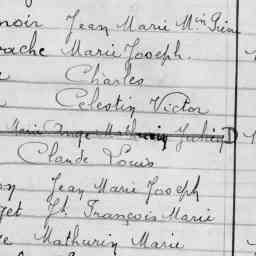 noir Jean Marie Min
rache Marie Joseph.
Charles
Celestin Victor
Marie Ange Mathurin
Claude Louis
Jean Marie Joseph
get Jh François Marie
Mathurin Marie